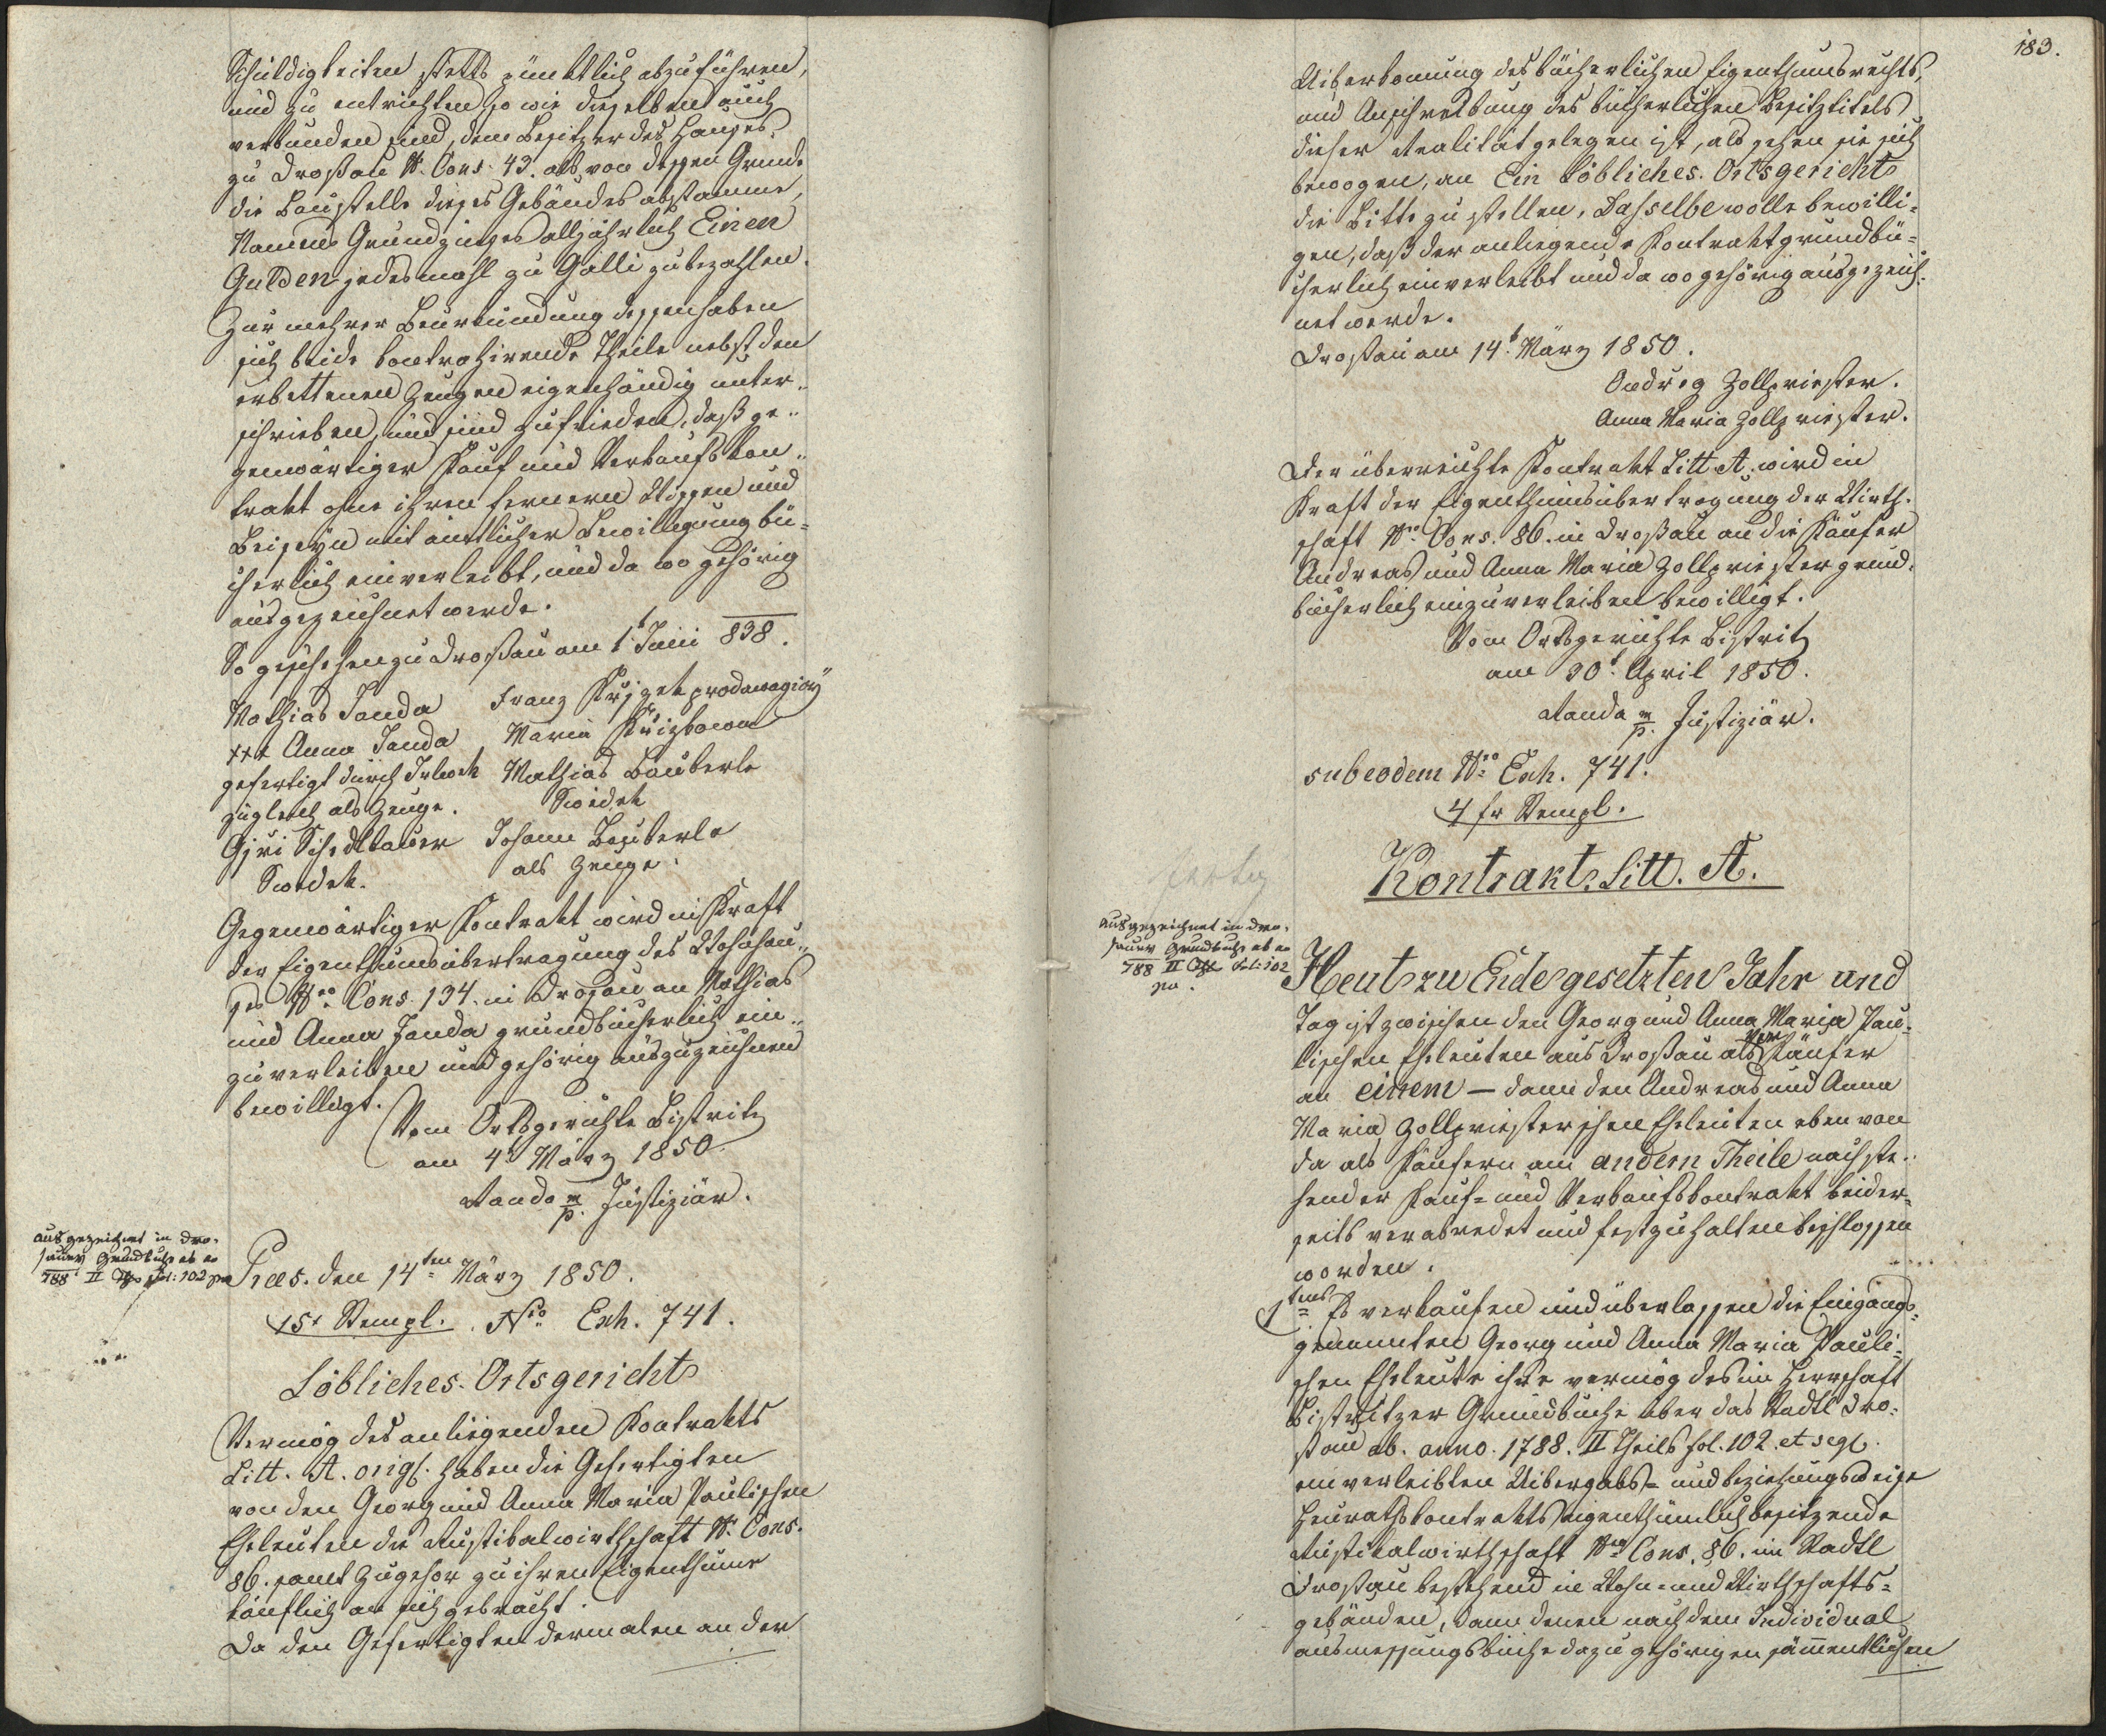 Schuldigkeiten stetts pünktlich abzuführen,
und zu entrichten so wie dieselben auch
verbunden sind, dem Besitzer des Hauses
zu Droßau N. Cons. 43. als von dessen Grunde
die Baustelle dieses Gebäudes abstamme,
Namens Grundzinses alljährlich Einen
Gulden jedesmahl zu Galli zubezahlen.
Zur mehrer Beurkundung dessen haben
sich beide kontrahirende Theile nebst den
erbettenen Zeugen eigenhändig unter„
schrieben, und sind zufrieden, daß ge„
genwärtiger Kauf und Verkaufskon„
trakt ohne ihren fernern Wissen und
Beiseyn mit ämtlicher Bewilligung bü=
cherlich einverleibt, und da wo gehörig
ausgezeichnet werde.
So geschehen zu Droßau am 1t Juni 838.
Mathias Janda Franz
+++ Anna Janda Maria
gefertigt durch Mathias Bauberle
zugleich als Zeuge. Swědek
Gjri Schedlbauer Johann Bauberle
Swědek. als Zeuge.
Gegenwärtiger Kontrakt wird in Kraft
der Eigenthumsübertragung des Wohnhau„
ses Nro Cons. 134. in Droßau an Mathias
und Anna Janda grundbücherlich ein„
zuverleiben und gehörig auszuzeichnen
bewilligt.
Vom Ortsgerichte Bistritz
am 4t März 1850.
Randa m/p. Justiziär.
ausgezeichnet in Dro=
sauer Grundbuche ab ao
788 II Fol: 102
Præs. den 14ten März 1850.
15x Stempl. Nro Exh. 741.
Löbliches Ortsgericht
Vermög des anliegenden Kontrakts
Litt. A. origl. haben die Gefertigten
von den Georg und Anna Maria Paulischen
Eheleuten die Rustikalwirthschaft N. Cons.
86. samt Zugehör zu ihren Eigenthume
käuflich an sich gebracht.
Da den Gefertigten dermalen an der
183.
Uiberkomung des bücherlichen Eigenthumsrechts,
und Anschreibung des bücherlichen Besitztitels
dieser Realität gelegen ist, als sehen sie sich
bewogen, an Ein Löbliches Ortsgericht
die Bitte zu stellen, Dasselbe wolle bewilli=
gen, daß der anliegende Kontrakt grundbü=
cherlich einverleibt und da wo gehörig ausgezeich=
net werde.
Droßau am 14t März 1850.
Ondreg Zollpriester.
Anna Maria Zollpriester.
Der überreichte Kontrakt Litt. A. wird in
Kraft der Eigenthumsübertragung der Wirth=
schaft Nro Cons. 86. in Droßau an die Käufer
Andreas und Anna Maria Zollpriester grund=
bücherlich einzuverleiben bewilligt.
Vom Ortsgerichte Bistritz
am 30t April 1850.
Randa m/p. Justiziär.
sub eodem Nro Exh. 741.
4 fr Stempl.
Kontrakt Litt. A.
ausgezeichnet in Dro=
sauer Grundbuche ab ao
788 II Fol: 102
Heut zu Ende gesetzten Jahr und
Tag ist zwischen den Georg und Anna Maria Pau=
lischen Eheleuten aus Droßau als Verkäufer
an einem — dann den Andreas und Anna
Maria Zollpriesterschen Eheleuten eben von
da als Käufern am andern Theile nachste=
hender Kauf= und Verkaufskontrakt beider=
seits verabredet und festzuhalten beschlossen
worden.
1tens Es verkaufen und überlassen die Eingangs=
genannten Georg und Anna Maria Pauli=
schen Eheleute ihre vermög des im Herrschaft
Bistritzer Grundbuche über das Stadtl Dro=
ßau ab. anno. 1788. II Theils fol. 102. et seq.
einverleibten Uibergabs= und beziehungsweise
Heurathskontrakts eigenthümlich besitzende
Rustikalwirthschaft Nro Cons. 86. im Stadtl
Droßau bestehend in Wohn= und Wirthschafts=
gebäuden, dann denen nach dem Individual
ausmessungsbuche dazu gehörigen sämmentlichen